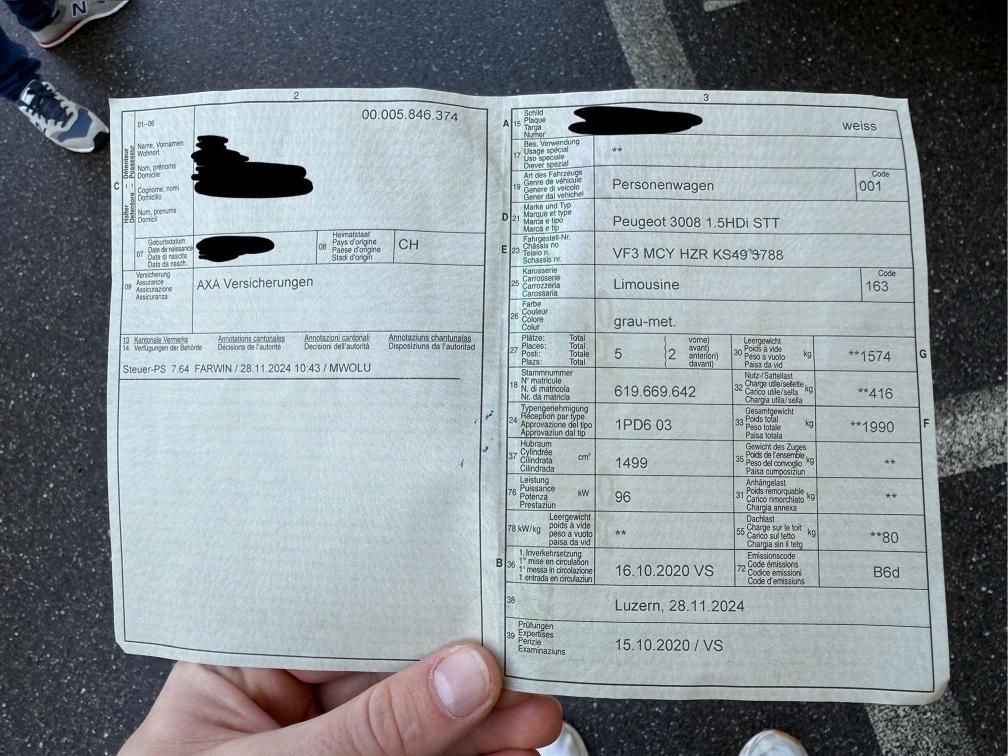 2
00.005.846.374
01-06
Name, Vornamen
Wohnort
Nom, prénoms
Domicile
Cognome, nomi
Domicilio
Num, prenums
Domicil
C
Halter – Détenteur
Detentore – Possessur
07
Geburtsdatum
Date de naissance
Data di nascita
Data da nasch.
08
Heimatstaat
Pays d'origine
Paese d'origine
Stadi d'origin
CH
09
Versicherung
Assurance
Assicurazione
Assicuranza
AXA Versicherungen
13 Kantonale Vermerke Annotations cantonales Annotazioni cantonali Annotaziuns chantunalas
14 Verfügungen der Behörde Décisions de l'autorité Decisioni dell'autorità Disposiziuns da l'autoritad
Steuer-PS 7.64 FARWIN / 28.11.2024 10:43 / MWOLU
3
A
15
Schild
Plaque
Targa
Numer
weiss
17
Bes. Verwendung
Usage spécial
Uso speciale
Diever spezial
**
19
Art des Fahrzeugs
Genre de véhicule
Genere di veicolo
Gener dal vehichel
Personenwagen
Code
001
D
21
Marke und Typ
Marque et type
Marca e tipo
Marca e tip
Peugeot 3008 1.5HDi STT
E
23
Fahrgestell-Nr.
Châssis no
Telaio n.
Schassis nr.
VF3 MCY HZR KS49 3788
25
Karosserie
Carrosserie
Carrozzeria
Carossaria
Limousine
Code
163
26
Farbe
Couleur
Colore
Colur
grau-met.
27
Plätze: Total
Places: Total
Posti: Totale
Plazs: Total
5
(2
vorne)
avant)
anteriori)
davant)
30
Leergewicht
Poids à vide
Peso a vuoto
Paisa da vid
kg
**1574
G
18
Stammnummer
N° matricule
N. di matricola
Nr. da matricla
619.669.642
32
Nutz-/Sattellast
Charge utile/sellette
Carico utile/sella
Chargia utila/sella
kg
**416
24
Typengenehmigung
Réception par type
Approvazione del tipo
Approvaziun dal tip
1PD6 03
33
Gesamtgewicht
Poids total
Peso totale
Paisa totala
kg
**1990
F
37
Hubraum
Cylindrée
Cilindrata
Cilindrada
cm³
1499
35
Gewicht des Zuges
Poids de l'ensemble
Peso del convoglio
Paisa cumposiziun
kg
**
76
Leistung
Puissance
Potenza
Prestaziun
kW
96
31
Anhängelast
Poids remorquable
Carico rimorchiato
Chargia annexa
kg
**
78 kW/kg
Leergewicht
poids à vide
peso a vuoto
paisa da vid
**
55
Dachlast
Charge sur le toit
Carico sul tetto
Chargia sin il tetg
kg
**80
B
36
1. Inverkehrsetzung
1re mise en circulation
1a messa in circolazione
1. entrada en circulaziun
16.10.2020 VS
72
Emissionscode
Code émissions
Codice emissioni
Code d'emissiuns
B6d
38
Luzern, 28.11.2024
39
Prüfungen
Expertises
Perizie
Examinaziuns
15.10.2020 / VS